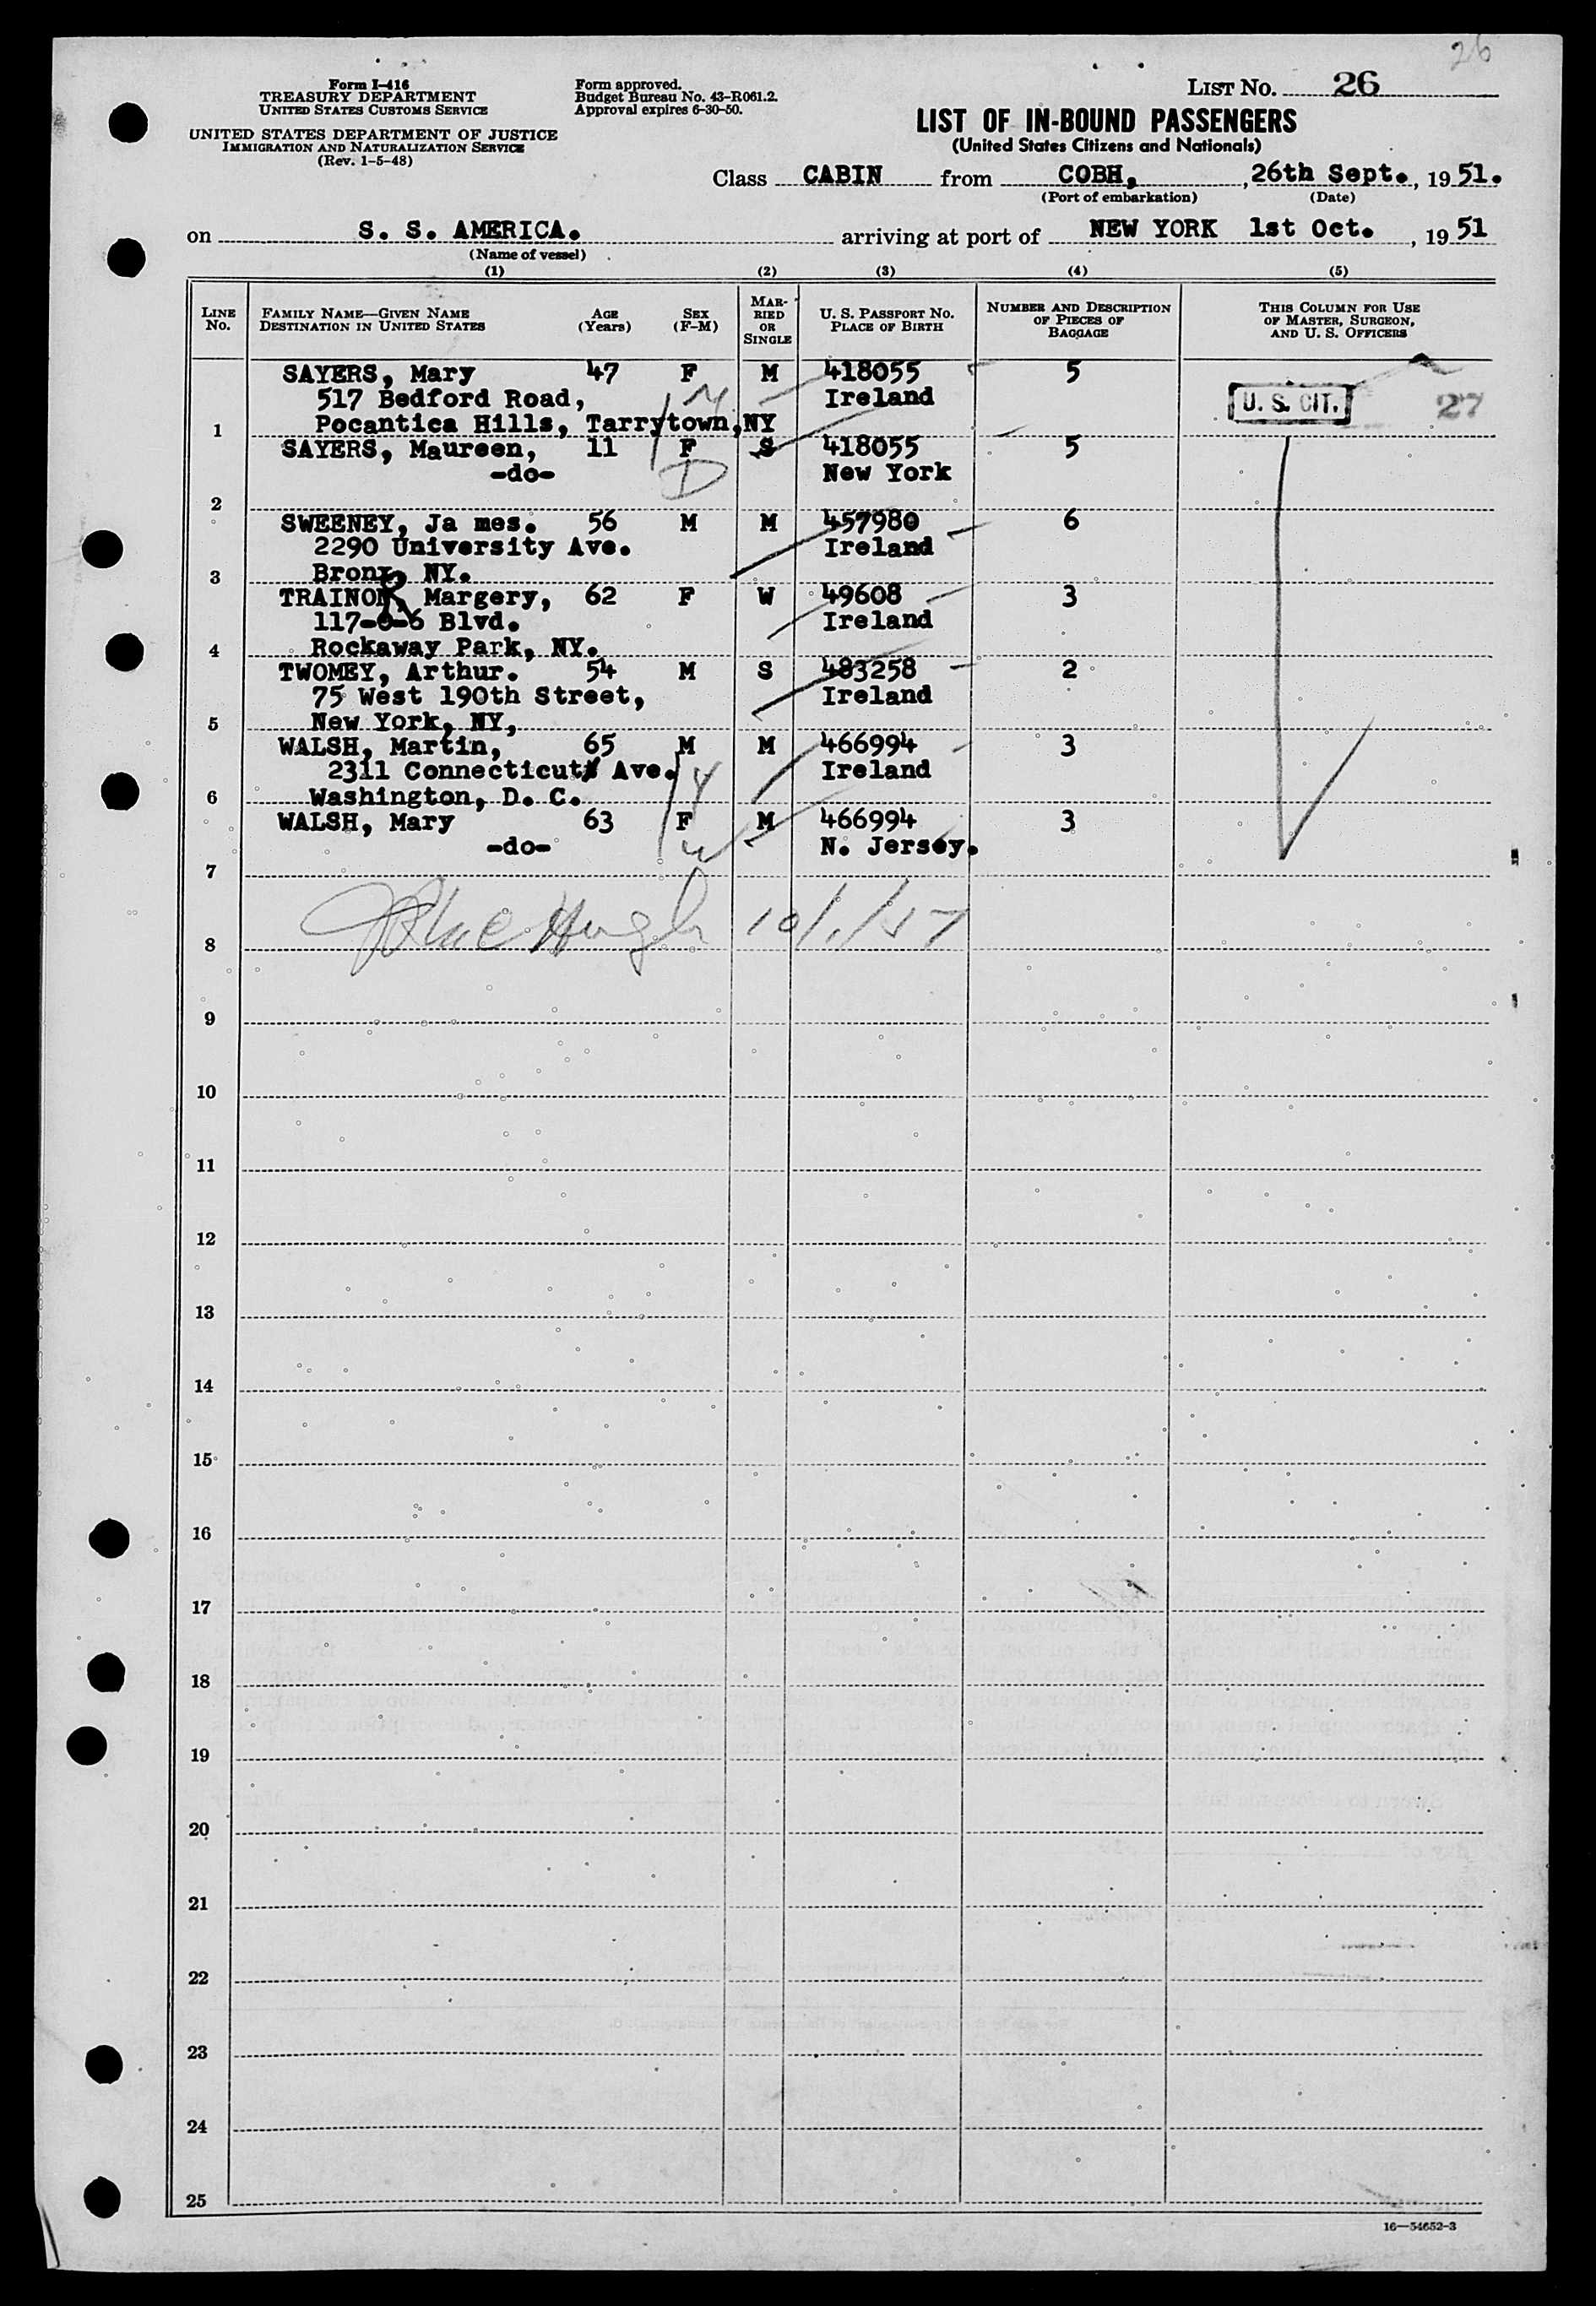 26
Form I-416
TREASURY DEPARTMENT
UNITED STATES CUSTOMS SERVICE
UNITED STATES DEPARTMENT OF JUSTICE
IMMIGRATION AND NATURALIZATION SERVICE
(Rev. 1-5-48)
Form approved.
Budget Bureau No. 43-R061.2.
Approval expires 6-30-50.
LIST NO. 26
LIST OF IN-BOUND PASSENGERS
(United States Citizens and Nationals)
Class CABIN from COBH, , 26th Sept., 19 51.
(Port of embarkation) (Date)
on S. S. AMERICA. arriving at port of NEW YORK 1st Oct. , 19 51
(Name of vessel)
(1) (2) (3) (4) (5)
LINE NO. FAMILY NAME—GIVEN NAME DESTINATION IN UNITED STATES AGE (Years) SEX (F-M) MARRIED OR SINGLE U. S. PASSPORT NO. PLACE OF BIRTH NUMBER AND DESCRIPTION OF PIECES OF BAGGAGE THIS COLUMN FOR USE OF MASTER, SURGEON, AND U. S. OFFICERS
SAYERS, Mary 47 F M 418055 5
517 Bedford Road, Ireland U. S. CIT. 27
1 Pocantica Hills, Tarrytown,NY
SAYERS, Maureen, 11 F S 418055 5
-do- D New York
2
SWEENEY, Ja mes. 56 M M 457980 6
2290 University Ave. Ireland
3 Bronx, NY.
TRAINOR, Margery, 62 F W 49608 3
117-0-6 Blvd. Ireland
4 Rockaway Park, NY.
TWOMEY, Arthur. 54 M S 483258 2
75 West 190th Street, Ireland
5 New York, NY,
WALSH, Martin, 65 M M 466994 3
2311 Connecticut Ave. Ireland
6 Washington, D. C.
WALSH, Mary 63 F M 466994 3
-do- N. Jersey.
7
8 10/1/51
9
10
11
12
13
14
15
16
17
18
19
20
21
22
23
24
25
16—54652-3